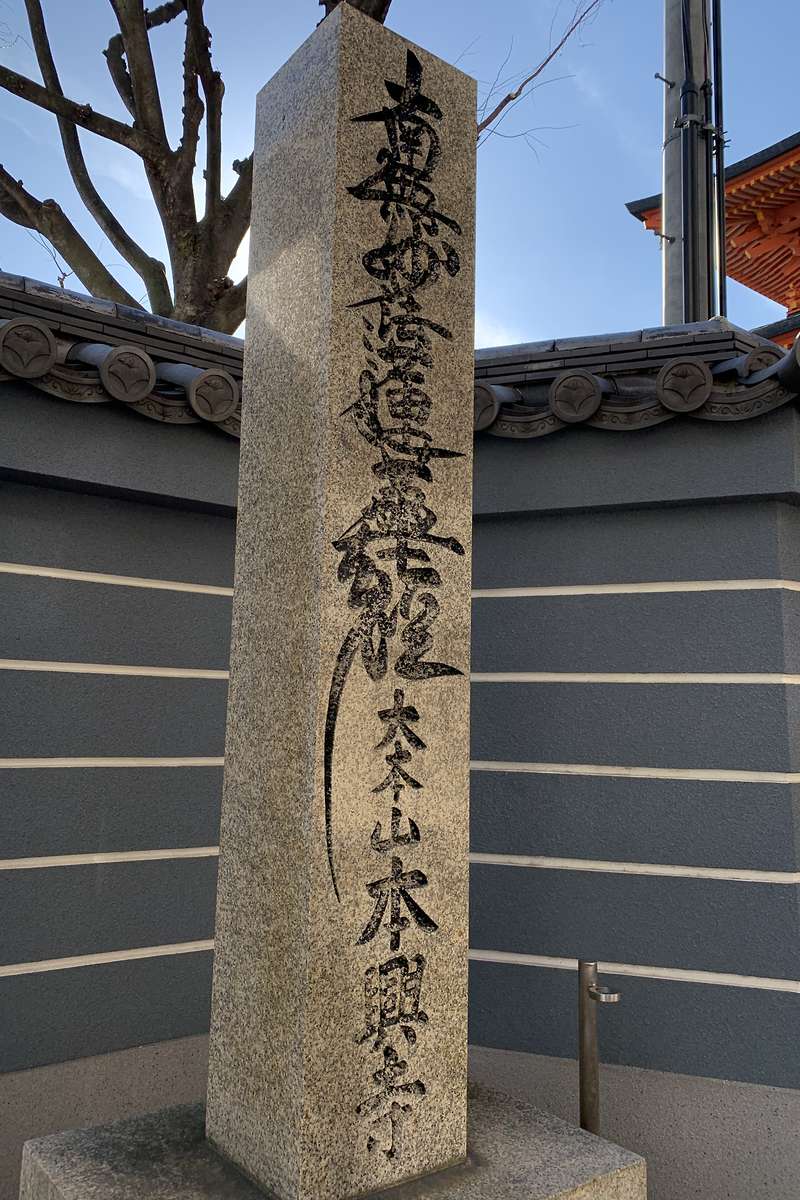 南無妙法蓮華經 大本山 本興寺